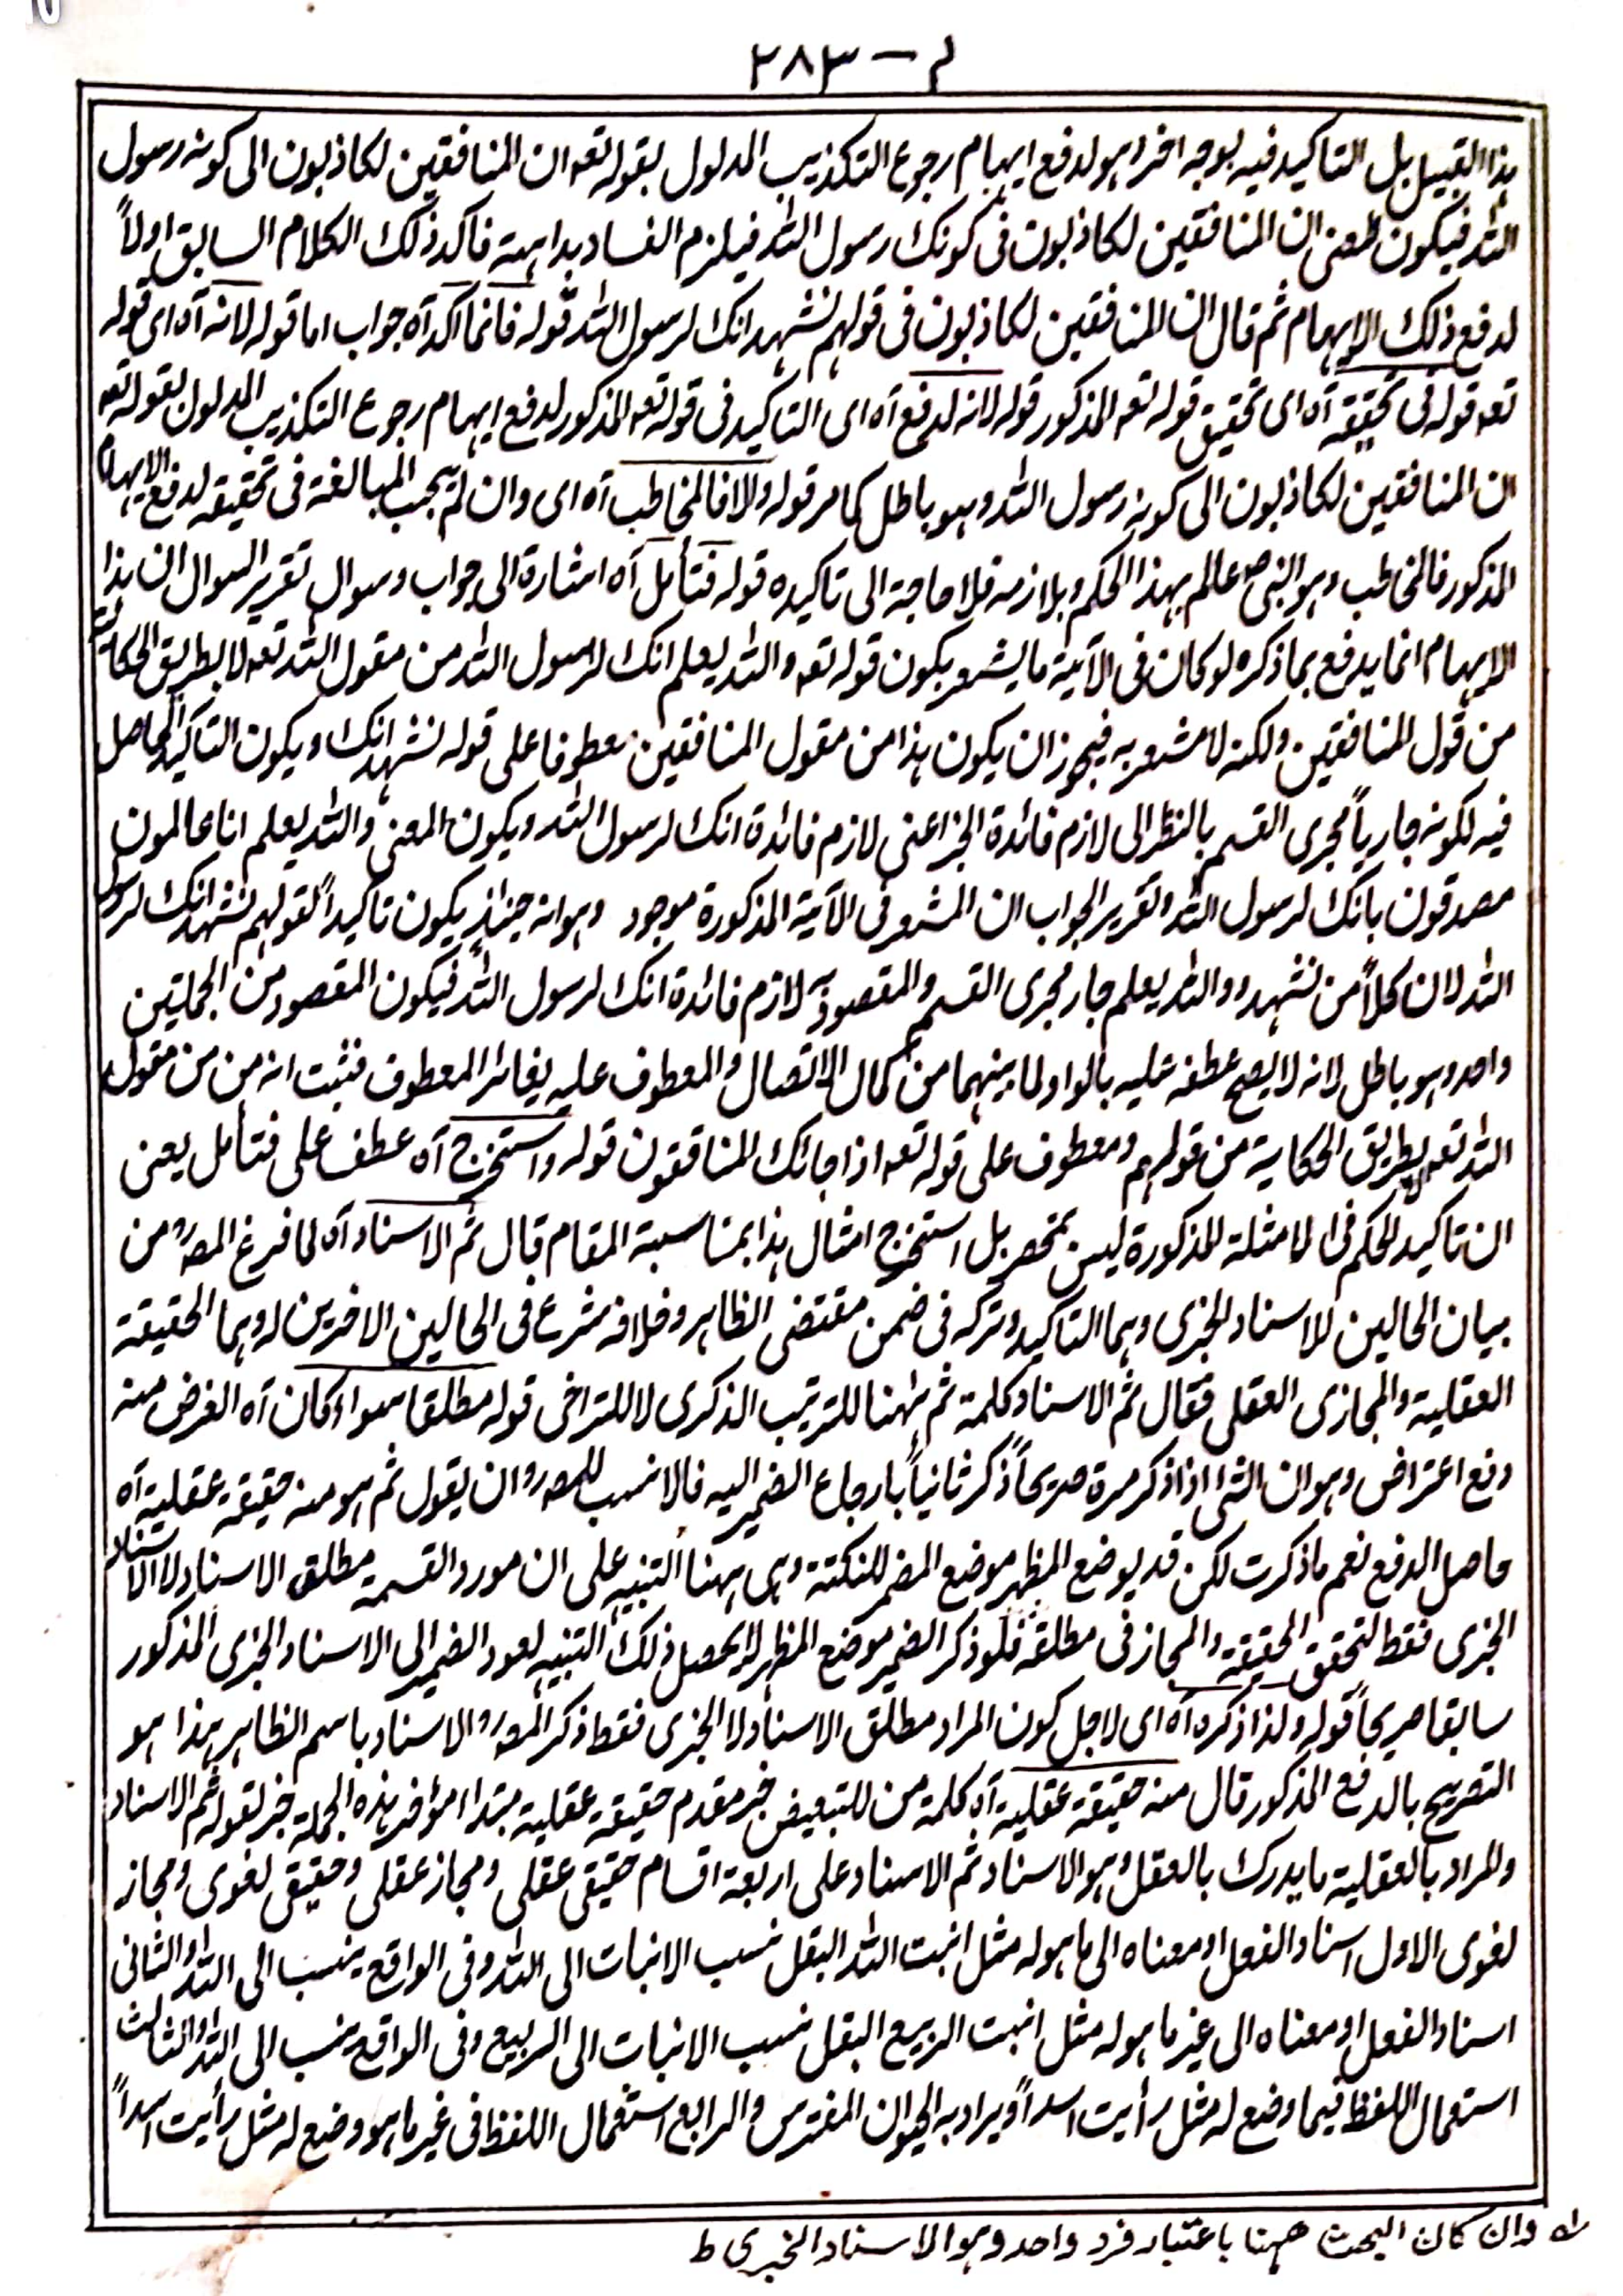 م — ٢٨٣
هذا القبيل بل التاكيد فيه بوجه اخر وهو لدفع ايهام رجوع التكذيب المدلول بقوله تعه ان المنافقين لكاذبون الى كونه رسول
الله فيكون المعنى ان المنافقين لكاذبون فى كونك رسول الله فيلزم الفساد بداهته فاكد ذلك الكلام السابق اولاً
لدفع ذلك الايهام ثم قال ان المنافقين لكاذبون فى قولهم نشهد انك لرسول الله قوله فانما اكد آه جواب اما قوله لانه آه اى قوله
تعه قوله فى تحقيقه آه اى تحقيق قوله تعه المذكور قوله لانه لدفع آه اى التاكيد فى قوله تعه المذكور لدفع ايهام رجوع التكذيب المدلول بقوله تعه
ان المنافقين لكاذبون الى كونه رسول الله وهو باطل كما مر قوله والا فالمخاطب آه اى وان لم يجب المبالغة فى تحقيقه لدفع الايهام
المذكور فالمخاطب وهو النبى ص عالم بهذا الحكم وبلازمه فلا حاجة الى تاكيده قوله فتأمل آه اشارة الى جواب وسوال تقرير السوال ان هذا
الايهام انما يدفع بما ذكره لو كان فى الآية ما يشعر بكون قوله تعه والله يعلم انك لرسول الله من مقول الله تعه لا بطريق الحكاية
من قول المنافقين ولكنه لا مشعر به فيجوز ان يكون هذا من مقول المنافقين معطوفا على قوله نشهد انك ويكون التاكيد الحاصل
فيه لكونه جارياً مجرى القسم بالنظر الى لازم فائدة الخبر اعنى لازم فائدة انك لرسول الله ويكون المعنى والله يعلم انا عالمون
مصدقون بانك لرسول الله وتقرير الجواب ان المشعر فى الآية المذكورة موجود وهو انه حينئذٍ يكون تاكيداً لقولهم نشهد انك لرسول
الله لان كلاً من نشهد و والله يعلم جار مجرى القسم والمقصود به لازم فائدة انك لرسول الله فيكون المقصود من الجملتين
واحد وهو باطل لانه لا يصح عطفه عليه بالواو لما بينهما من كمال الاتصال والمعطوف عليه يغائر المعطوف فثبت انه من من مقول
الله تعه لا بطريق الحكاية من قولهم ومعطوف على قوله تعه اذا جائك المنافقون قوله واستخرج آه عطف على فتأمل يعنى
ان تاكيد الحكم فى الامثلة المذكورة ليس بمنحصر بل استخرج امثال هذا بمناسبة المقام قال ثم الاسناد آه لما فرغ المصرح من
بيان الحالين للاسناد الخبرى وهما التاكيد وتركه فى ضمن مقتضى الظاهر وخلافه شرع فى الحالين الاخرين له وهما الحقيقة
العقلية والمجازى العقلى فقال ثم الاسناد كلمة ثم ههنا للترتيب الذكرى لا للتراخى قوله مطلقا سواء كان آه الغرض منه
دفع اعتراض وهو ان الشى اذا ذكر مرة صريحاً ذكر ثانياً بارجاع الضمير اليه فالانسب للمصرح ان يقول ثم هو منه حقيقة عقلية آه
حاصل الدفع نعم ما ذكرت لكن قد يوضع المظهر موضع المضمر للنكتة وهى ههنا التنبيه على ان مورد القسمة مطلق الاسناد لا الاسناد
الخبرى فقط لتحقق الحقيقة والمجاز فى مطلقه فلو ذكر الضمير موضع المظهر لا يحصل ذلك التنبيه لعود الضمير الى الاسناد الخبرى المذكور
سابقا صريحاً قوله ولذا ذكره آه اى لاجل كون المراد مطلق الاسناد لا الخبرى فقط ذكر المصرح الاسناد باسم الظاهر هذا هو
التصريح بالدفع المذكور قال منه حقيقة عقلية آه كلمة من للتبعيض خبر مقدم حقيقة عقلية مبتداء مؤخر هذه الجملة خبر لقوله ثم الاسناد
والمراد بالعقلية ما يدرك بالعقل وهو الاسناد ثم الاسناد على اربعة اقسام حقيقى عقلى ومجاز عقلى وحقيقى لغوى ومجاز
لغوى الاول اسناد الفعل او معناه الى ما هو له مثل انبت الله البقل نسب الانبات الى الله وفى الواقع ينسب الى الله والثانى
اسناد الفعل او معناه الى غير ما هو له مثل انبت الربيع البقل نسب الانبات الى الربيع وفى الواقع ينسب الى الله والثالث
استعمال اللفظ فيما وضع له مثل رأيت اسداً ويراد به الحيوان المفترس والرابع استعمال اللفظ فى غير ما هو وضع له مثل رأيت اسداً
له وان كان البحث ههنا باعتبار فرد واحد وهو الاسناد الخبرى ط